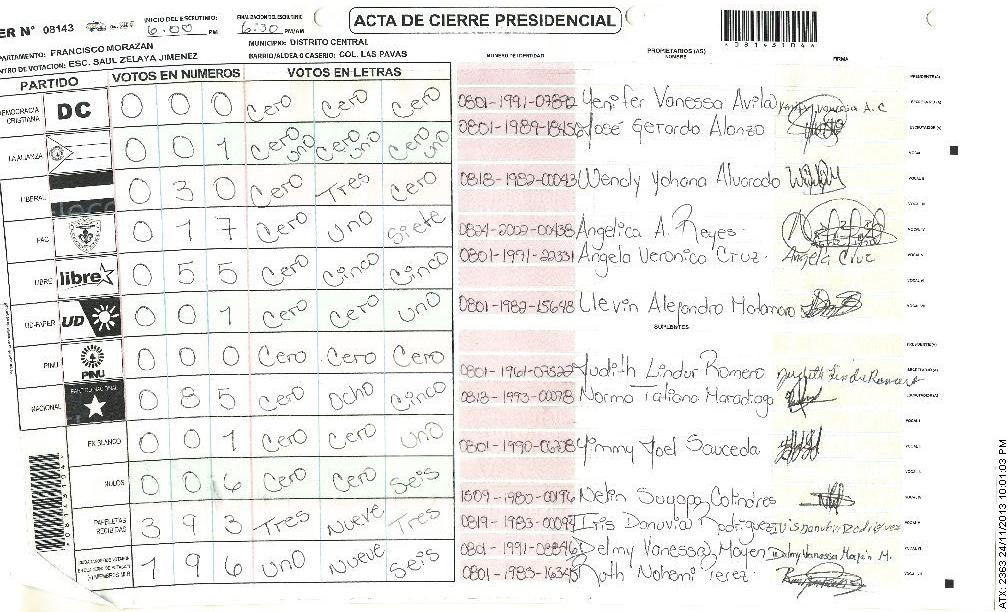 ACTA DE CIERRE PRESIDENCIAL
ER N° 08143
INICIO DEL ESCRUTINIO:
6:00 PM
FINALIZACION DEL ESCRUTINIO:
6:30 PM/AM
08143104
PARTAMENTO: FRANCISCO MORAZAN
MUNICIPIO: DISTRITO CENTRAL
NTRO DE VOTACION: ESC. SAUL ZELAYA JIMENEZ
BARRIO/ALDEA O CASERIO: COL. LAS PAVAS
NUMERO DE IDENTIDAD
PROPIETARIOS (AS)
NOMBRE
FIRMA
PARTIDO VOTOS EN NUMEROS VOTOS EN LETRAS
DEMOCRACIA CRISTIANA DC 0 0 0 Cero Cero Cero
LA ALIANZA 0 0 1 Cero Cero Cero
uno uno uno
LIBERAL 0 3 0 Cero Tres Cero
PAC 0 1 7 Cero Uno Siete
LIBRE libre 0 5 5 Cero Cinco Cinco
UD-FAPER UD 0 0 1 Cero Cero Uno
PINU PINU 0 0 0 Cero Cero Cero
NACIONAL 0 8 5 Cero Ocho Cinco
EN BLANCO 0 0 1 Cero Cero Uno
NULOS 0 0 6 Cero Cero Seis
PAPELETAS RECIBIDAS 3 9 3 Tres Nueve Tres
1 9 6 Uno Nueve Seis
0801-1991-07892 Yenifer Vanessa Avila
0801-1989-18450 José Gerardo Alonzo
0818-1982-00043 Wendy Yohana Alvarado
0824-2002-00438 Angelica A. Reyes.
0801-1991-22331 Angela Veronica Cruz. Angela Cruz
0801-1982-15698 Llevin Alejandro Matamoro
SUPLENTES
0801-1961-07522 Judith Lindur Romero
0813-1993-00078 Norma Tatiana Maradiaga
0801-1990-06208 Yimmy Joel Sauceda
1509-1980-00196 Nelin Suyapa Colindres
0819-1983-00097 Iris Danuvia Rodriguez
0801-1991-08846 Delmy Vanessa Moyen Delmy Vanessa M.
0801-1985-16345 Ruth Nohemi Perez.
08143104
ATX: 2363 24/11/2013 10:01:03 PM